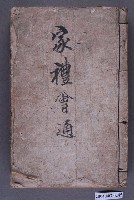 家禮會通